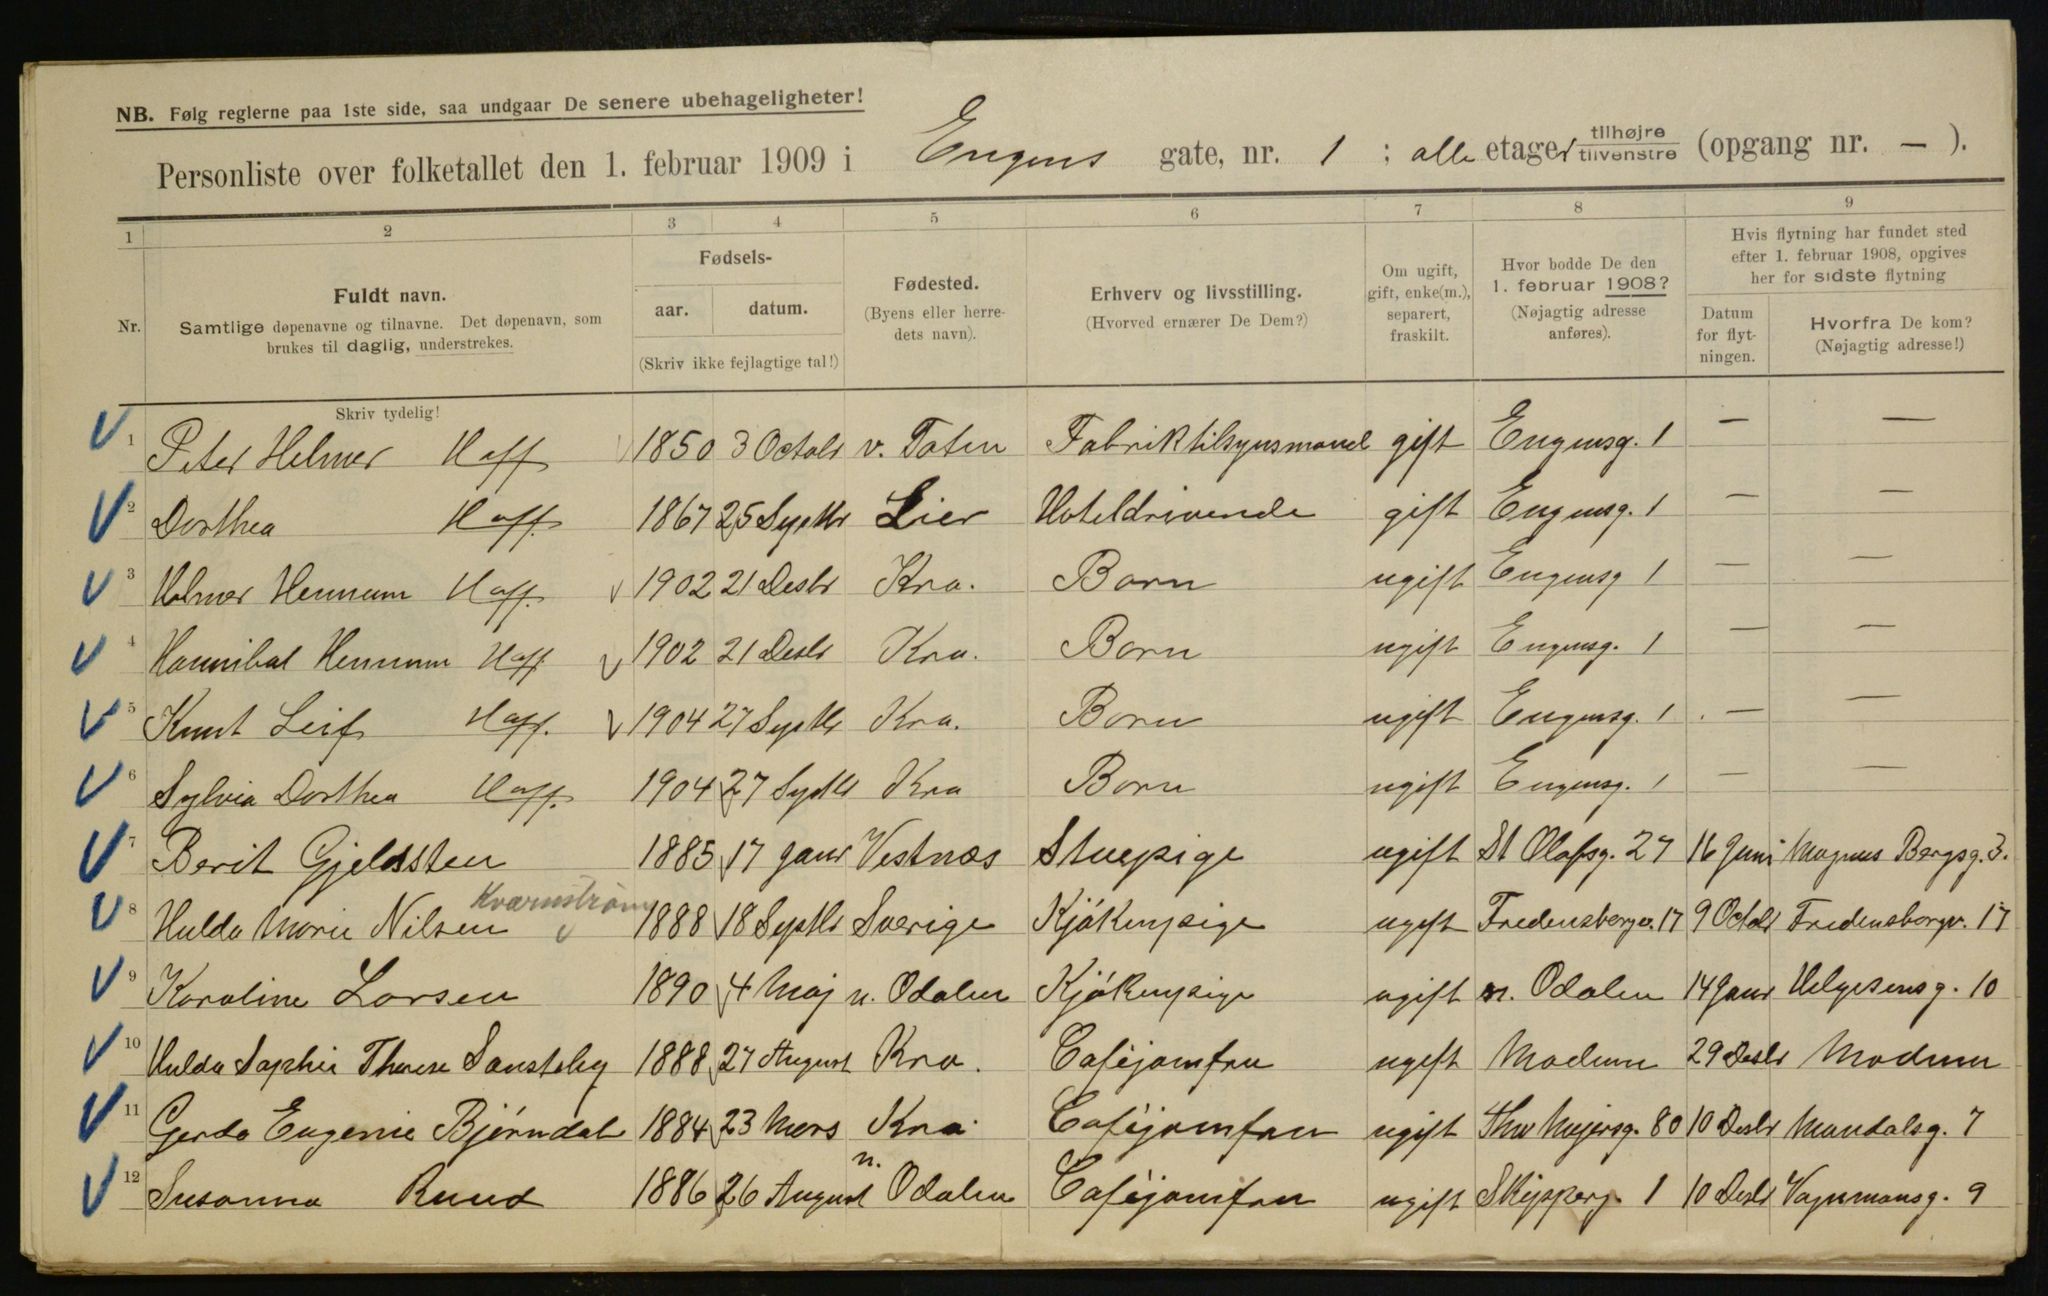 NB. Følg reglerne paa 1ste side, saa undgaar De senere ubehageligheter!
Personliste over folketallet den 1. februar 1909 i Engens gate, nr. 1 ; alle etager tilhøjre tilvenstre (opgang nr. — ).
1 2 3 4 5 6 7 8 9
Nr.
Fuldt navn.
Samtlige døpenavne og tilnavne. Det døpenavn, som
brukes til daglig, understrekes.
Fødsels-
aar. datum.
(Skriv ikke fejlagtige tal!)
Fødested.
(Byens eller herre-
dets navn).
Erhverv og livsstilling.
(Hvorved ernærer De Dem?)
Om ugift,
gift, enke(m.),
separert,
fraskilt.
Hvor bodde De den
1. februar 1908?
(Nøjagtig adresse
anføres).
Hvis flytning har fundet sted
efter 1. februar 1908, opgives
her for sidste flytning
Datum
for flyt-
ningen.
Hvorfra De kom?
(Nøjagtig adresse!)
Skriv tydelig!
1 Peter Helmer Haff 1850 3 Octobr v. Toten Fabriktilsynsmand gift Engensg. 1 — —
2 Dorthea Haff. 1867 25 Septbr Lier Hoteldrivende gift Engensg. 1 — —
3 Holmer Hennum Haff. 1902 21 Desbr Kra. Barn ugift Engensg 1 — —
4 Hannibal Hennum Haff 1902 21 Desbr Kra. Barn ugift Engensg. 1 — —
5 Knut Leif Haff. 1904 27 Septbr Kra. Barn ugift Engensg. 1 — —
6 Sylvia Dorthea Haff. 1904 27 Septbr Kra Barn ugift Engensg. 1 — —
7 Berit Gjeldsten 1885 17 Janr Vestnæs Stuepige ugift St Olafsg. 27 16 Juni Magnus Bergsg. 3.
Kværnstrøm
8 Hulda Marie Nilsen 1888 18 Septbr Sverige Kjøkenpige ugift Fredensborgv. 17 9 Octobr Fredensborgv. 17
9 Karoline Larsen 1890 4 Maj n. Odalen Kjøkenpige ugift n. Odalen 14 Janr Helgesensg. 10
10 Hulda Sophie Therese Sansteby 1888 27 August Kra. Caféjomfru ugift Modum 29 Desbr Modum
11 Gerda Eugenie Bjørndal 1884 23 Mars Kra. Caféjomfru ugift Thv Mejersg. 80 10 Desbr Mandalsg. 7
12 Susanna Ruud 1886 26 August n. Odalen Caféjomfru ugift Skipperg. 1 10 Desbr Vognmansg. 9